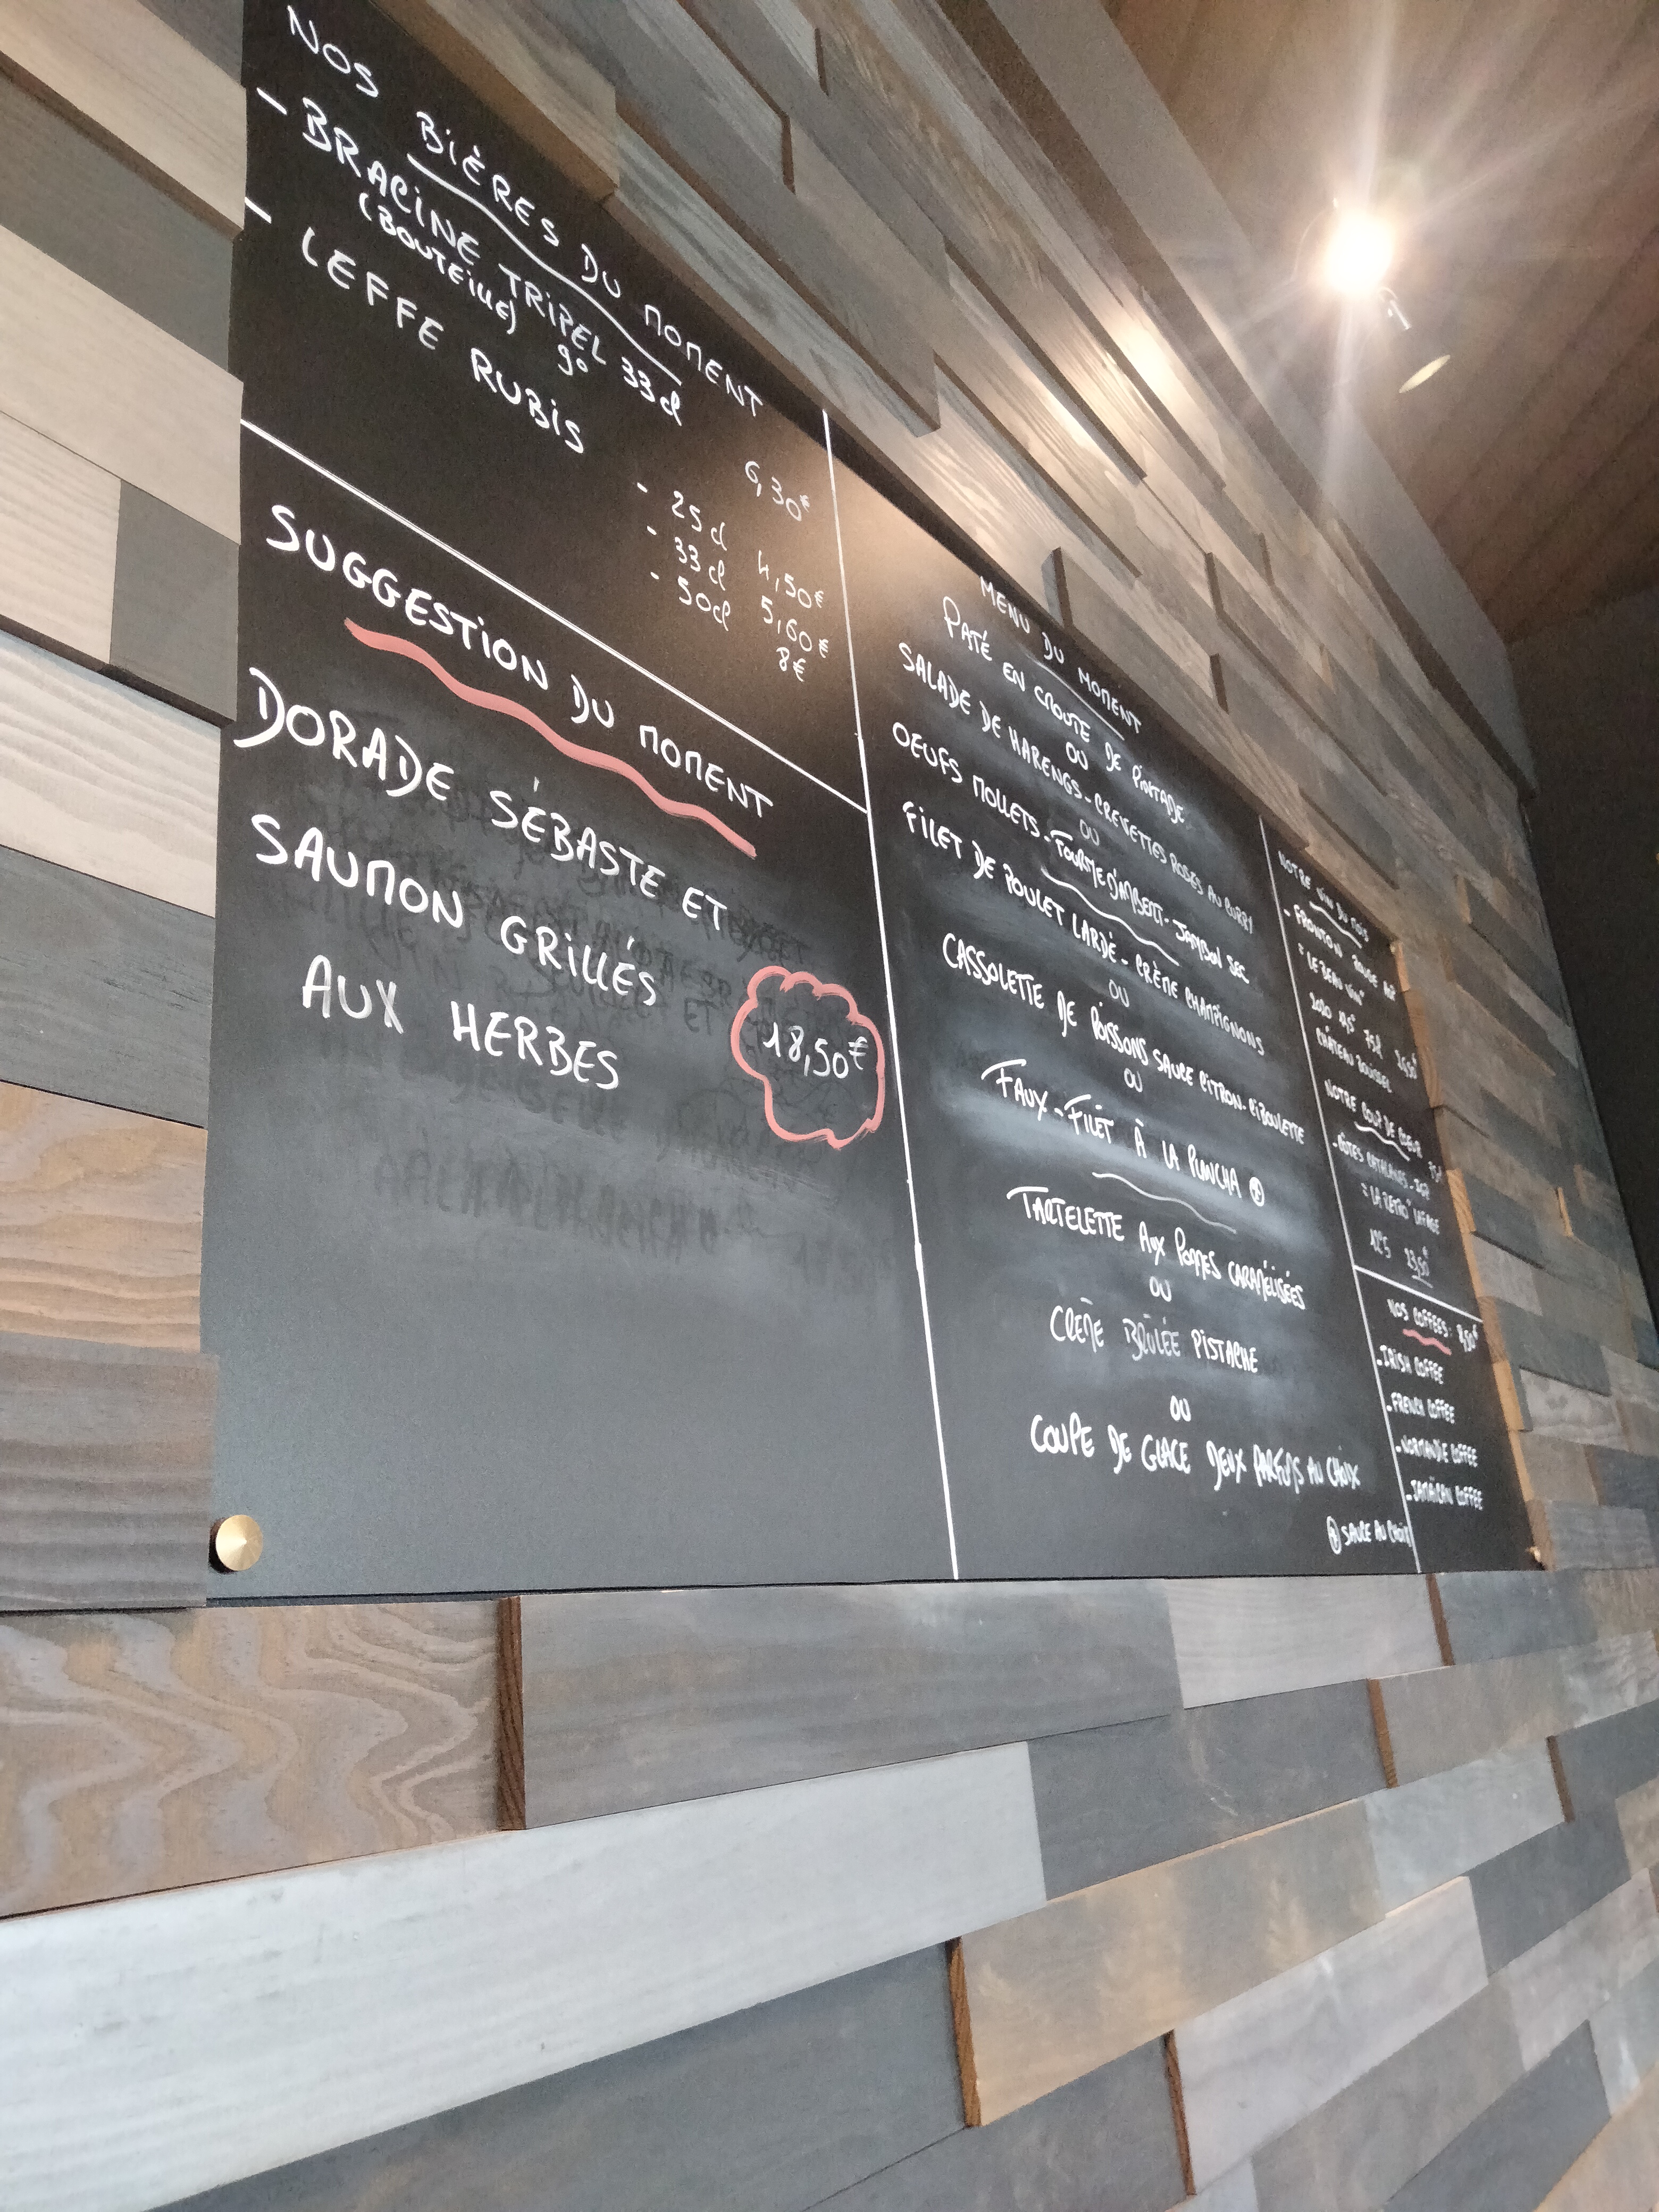 NOS BIÈRES DU MOMENT
- BRACINE TRIPEL 33cl
(BOUTEILLE) 9°
6,30€
- LEFFE RUBIS
- 25cl 4,50€
- 33cl 5,60€
- 50cl 8€
SUGGESTION DU MOMENT
DORADE SÉBASTE ET
SAUMON GRILLÉS
AUX HERBES
18,50€
MENU DU MOMENT
PATÉ EN CROUTE DE PINTADE
OU
SALADE DE HARENGS - CREVETTES ROSES AU CURRY
OU
OEUFS MOLLETS - FOURME D'AMBERT - JAMBON SEC
FILET DE POULET LARDÉ - CRÈME CHAMPIGNONS
OU
CASSOLETTE DE POISSONS SAUCE CITRON-CIBOULETTE
OU
FAUX-FILET À LA PLANCHA
TARTELETTE AUX POMMES CARAMÉLISÉES
OU
CRÈME BRÛLÉE PISTACHE
OU
COUPE DE GLACE DEUX PARFUMS AU CHOIX
SAUCE AU CHOIX
NOTRE VIN DU MOIS
- FRONTON ROUGE
"LE BEAU VINI"
2020 75cl
CHÂTEAU BOUISSEL
NOTRE COUP DE COEUR
- CÔTES CATALANES 75cl
"LA RETRO" LAFAGE
12°5 23,50€
NOS COFFEES: 8,50€
- IRISH COFFEE
- FRENCH COFFEE
- NORMANDIE COFFEE
- JAMAÏCAN COFFEE